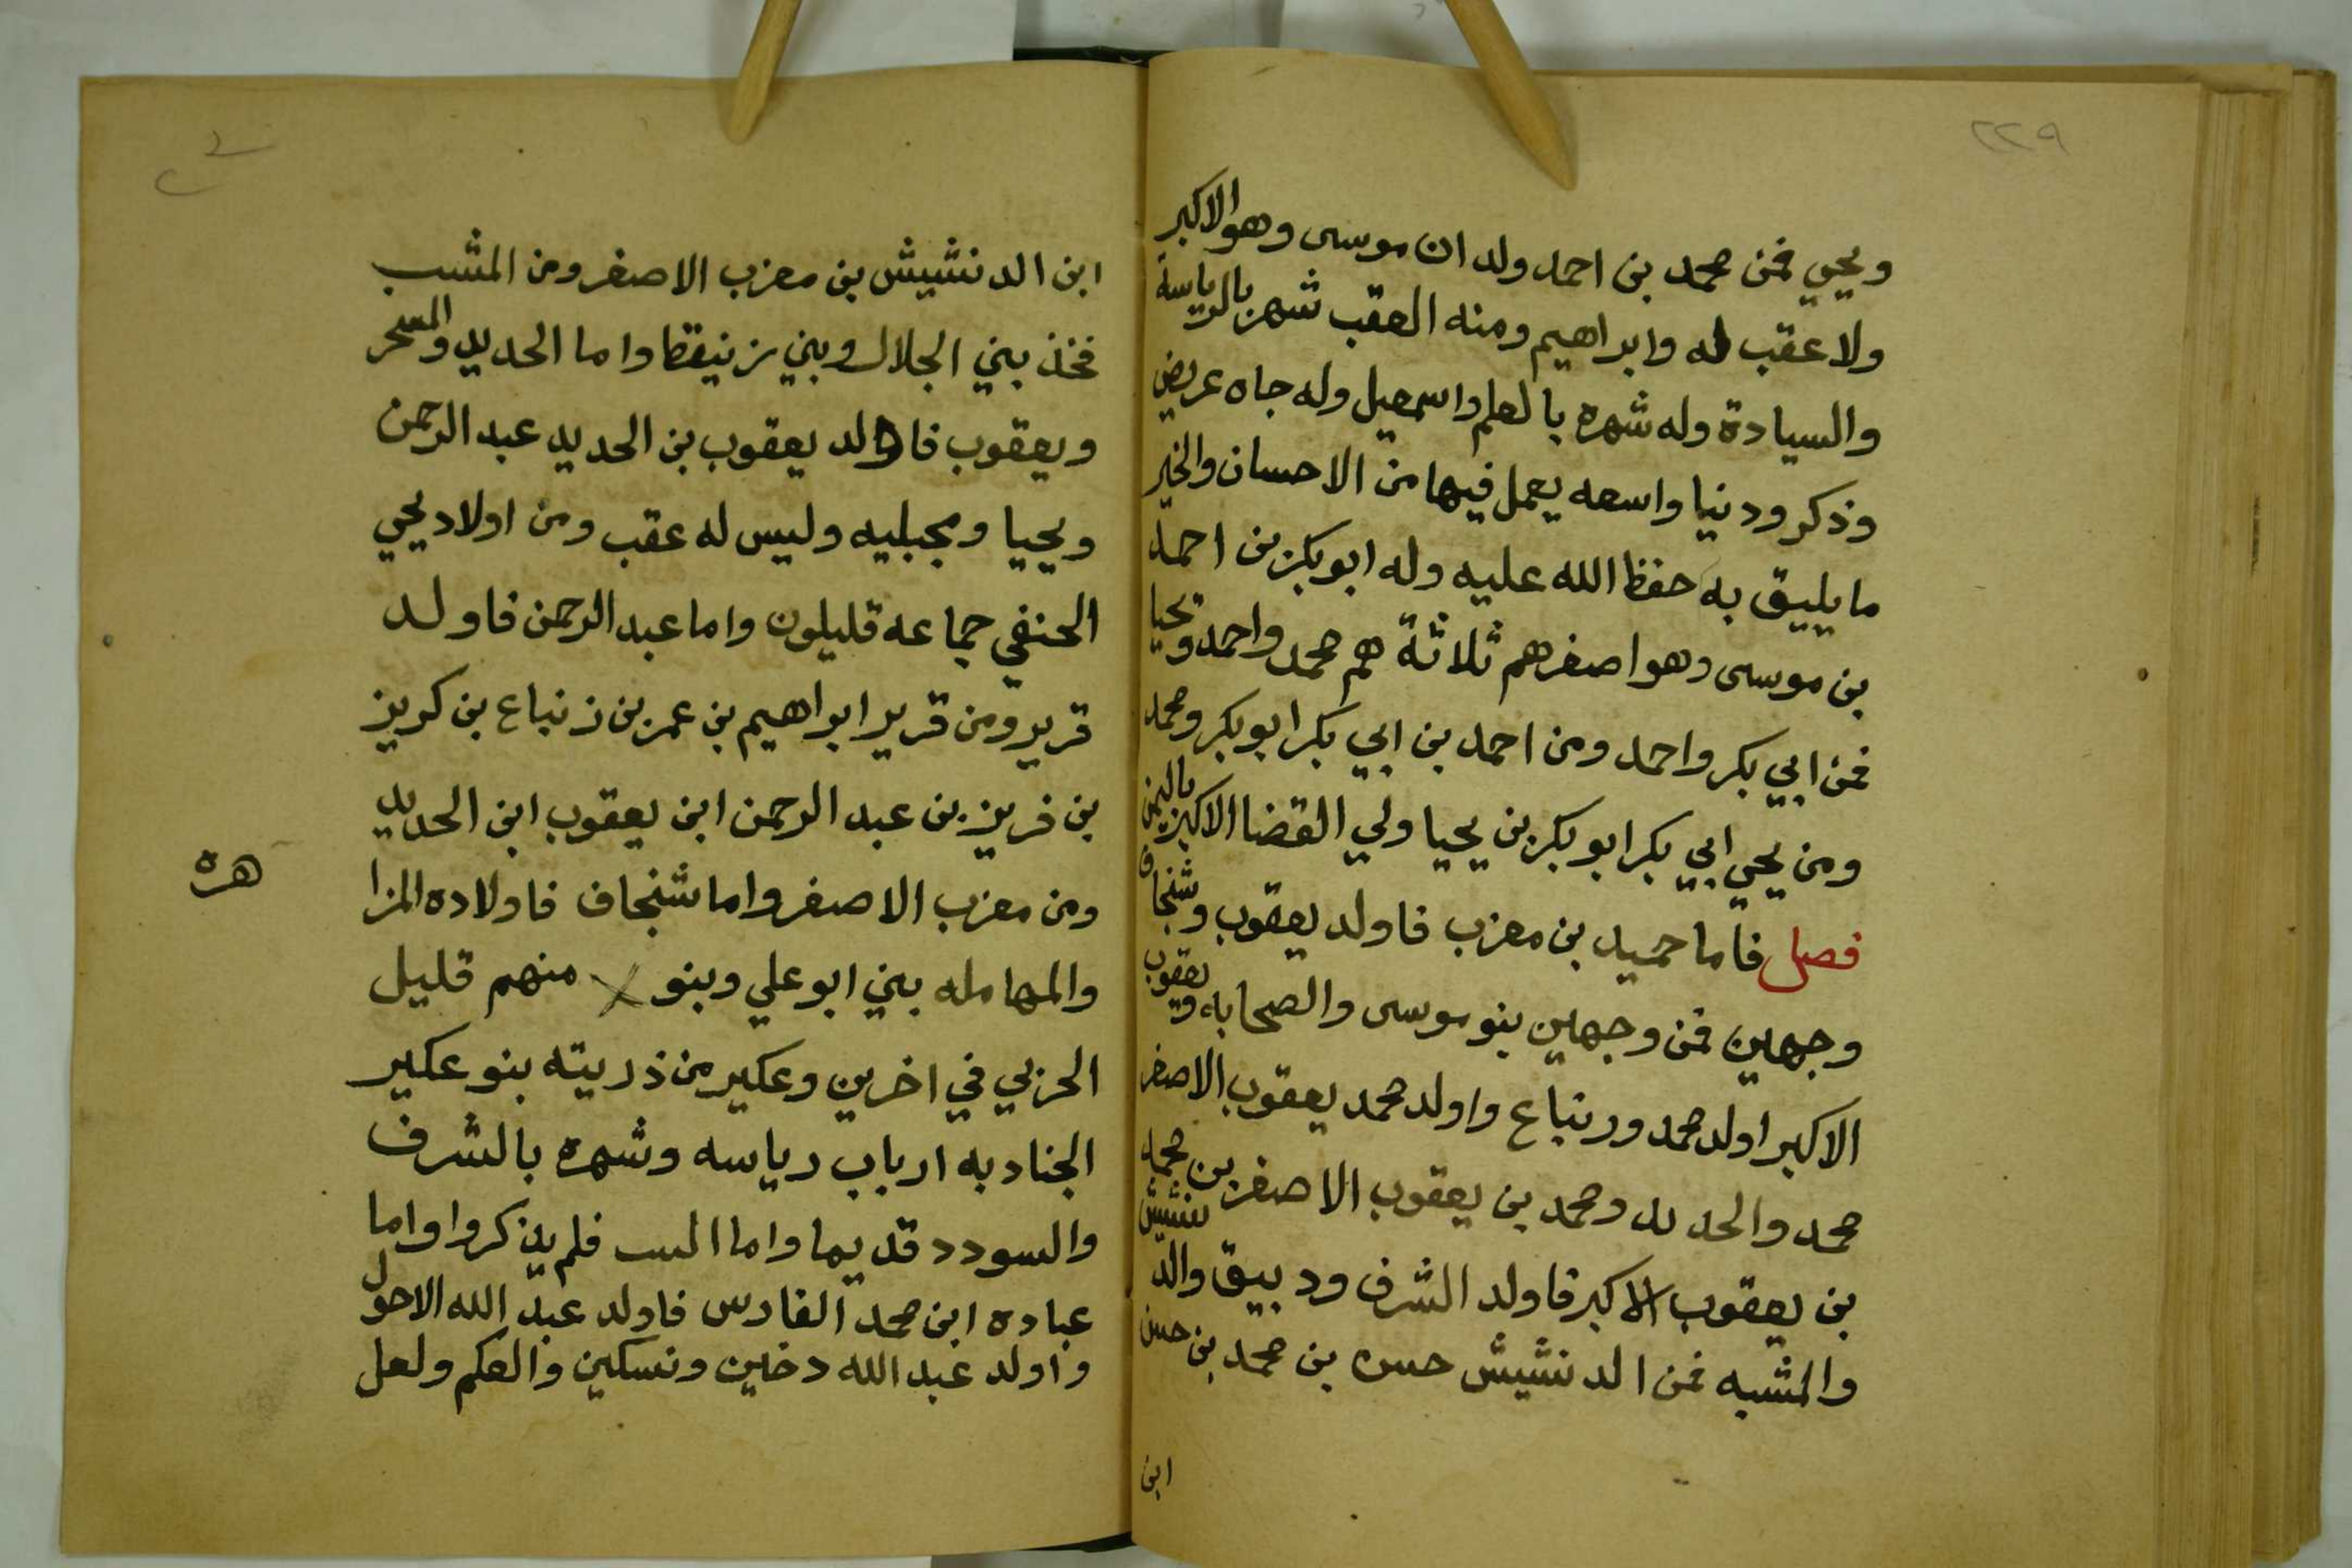 ٢٢٩
ويحيي فمن محمد بن احمد ولد ان موسى وهو الاكبر
ولا عقب له وابراهيم ومنه العقب شهر بالرياسة
والسيادة وله شهره بالعلم واسمعيل وله جاه عريض
وذكر ودنيا واسعه يعمل فيها من الاحسان والخير
ما يليق به حفظ الله عليه وله ابو بكر بن احمد
بن موسى وهو اصغرهم ثلاثة هم محمد واحمد ويحيا
فمن ابي بكر واحمد ومن احمد بن ابي بكر ابو بكر ومحمد
ومن يحيي ابي بكر ابو بكر بن يحيا ولي القضا الاكبر باليمن
فصل فاما حميد بن معزب فاولد يعقوب وشنجاف
وجهين فمن وجهين بنو موسى والصحابه ويعقوب
الاكبر اولد محمد ورنباع واولد محمد يعقوب الاصغر
محمد والحديد ومحمد بن يعقوب الاصغر بن محمد
بن يعقوب الاكبر فاولد الشرف ودبيق والدنشيش
والمشبه فمن الدنشيش حسن بن محمد بن حسن
ابن
ابن الدنشيش بن معزب الاصغر ومن المشب
فخذ بني الجلال وبني زنيقطا واما الحديد والمسحر
ويعقوب فاولد يعقوب بن الحديد عبد الرحمن
ويحيا ومجبليه وليس له عقب ومن اولاد يحيي
الحنفي جماعه قليلون واما عبد الرحمن فاولد
قرير ومن قرير ابراهيم بن عمر بن زنباع بن كريز
بن فريز بن عبد الرحمن ابن يعقوب ابن الحديد
ومن معزب الاصغر واما شنجاف فاولاده المزا
هره
والمهامله بني ابو علي وبنو منهم قليل
الحربي في اخرين وعكير من ذريته بنو عكير
الجنادبه ارباب رياسه وشهره بالشرف
والسودد قديما واما فلم يذكروا واما
عباده ابن محمد الفارس فاولد عبد الله الاحول
واولد عبد الله دخين ونسكين والعكم ولعل